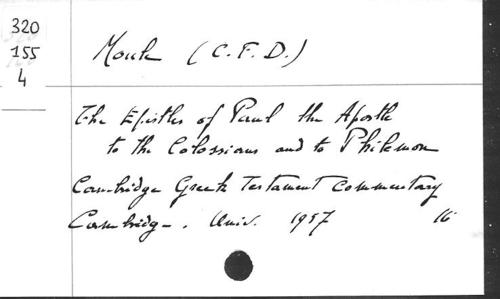 320
155
4
Moule (C.F.D.)
The Epistles of Paul the Apostle
to the Colossians and to Philemon
Cambridge Greek Testament Commentary
Cambridge. Univ. 1957 16